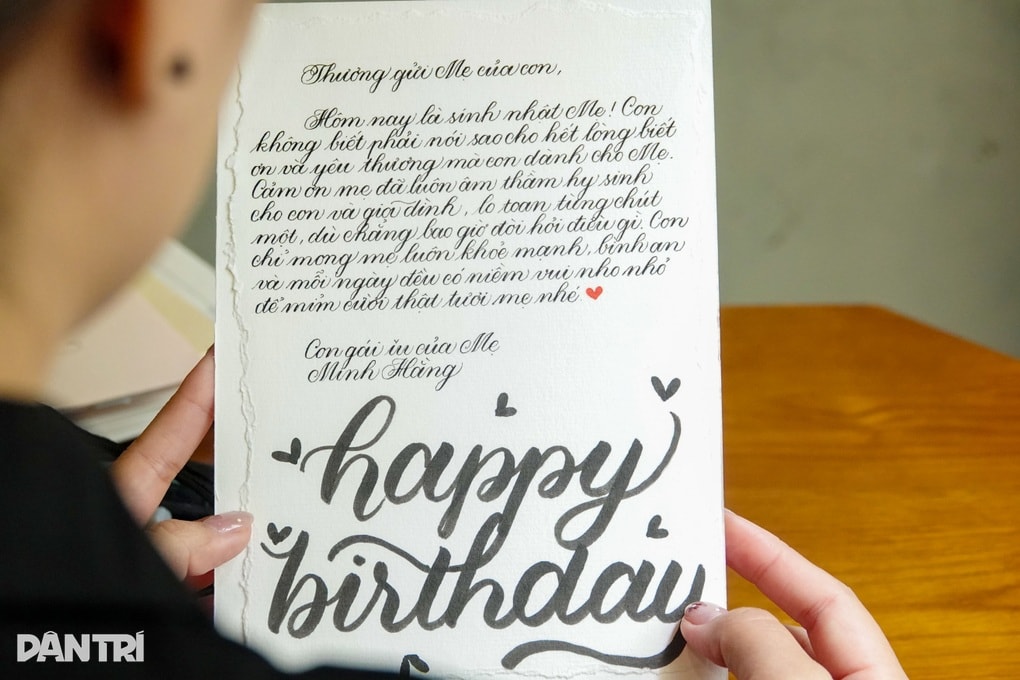 Thương gửi Mẹ của con,
Hôm nay là sinh nhật Mẹ! Con
không biết phải nói sao cho hết lòng biết
ơn và yêu thương mà con dành cho Mẹ.
Cảm ơn mẹ đã luôn âm thầm hy sinh
cho con và gia đình, lo toan từng chút
một, dù chẳng bao giờ đòi hỏi điều gì. Con
chỉ mong mẹ luôn khoẻ mạnh, bình an
và mỗi ngày đều có niềm vui nho nhỏ
để mỉm cười thật tươi mẹ nhé
Con gái iu của Mẹ
Minh Hằng
happy
birthday
DÂN TRÍ